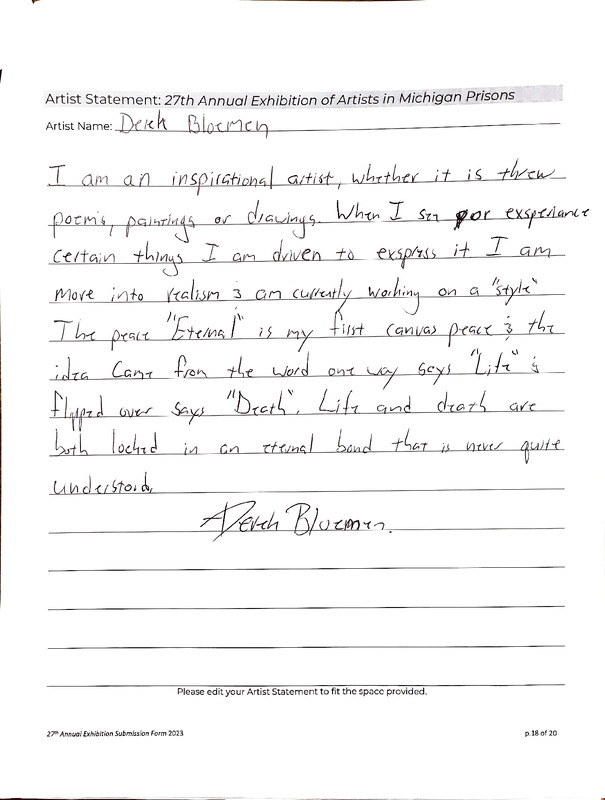 Artist Statement: 27th Annual Exhibition of Artists in Michigan Prisons
Artist Name: Derek Bloemen
I am an inspirational artist, whether it is threw
poems, paintings or drawings. When I see or exsperiance
certain things I am driven to exspress it I am
more into realism & am currently working on a "style"
The peace "Eternal" is my first canvas peace & the
idea came from the word one way says "Life" &
flipped over says "Death". Life and death are
both locked in an eternal bond that is never quite
understood.
Derek Bloemen.
Please edit your Artist Statement to fit the space provided.
27th Annual Exhibition Submission Form 2023
p.18 of 20